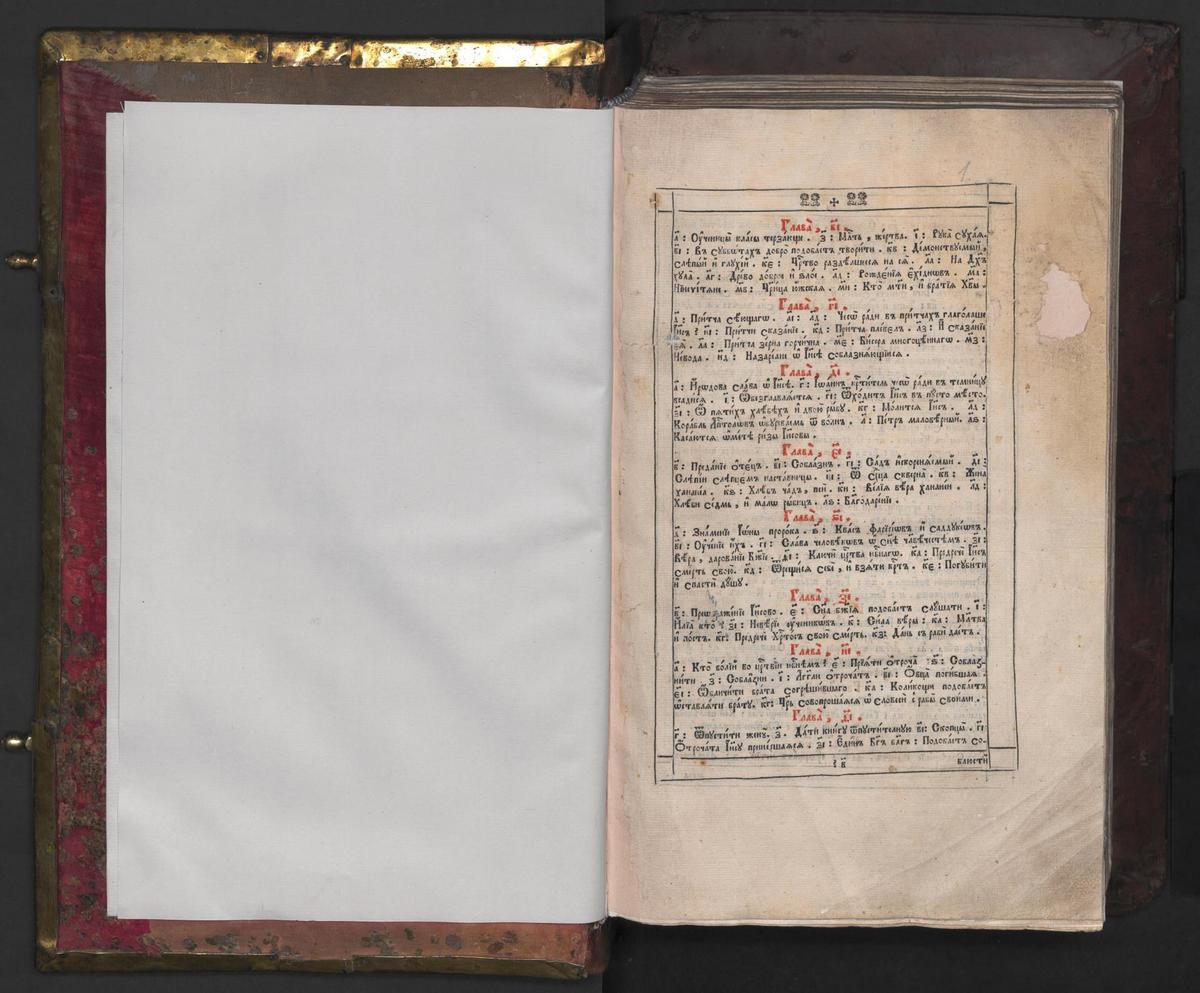 1.
Глава̀, в҃і.
а҃ : Оу҆ченицы̀ кла́сы терза́ющи. з҃ : Мл҃ть, же́ртва. і҃ : Рука̀ сꙋха́ѧ.
в҃і : Въ сꙋббѡ́тахъ добро̀ подоба́етъ твори́ти. к҃в : Де́монствꙋемый,
слѣпы́й и҆ глꙋхі́й. к҃є : Црⷭ҇тво раздѣ́лшеесѧ на сѧ̀. л҃а : На Дх҃ъ
хꙋла̀. л҃г : Дре́во до́брое и҆ ѕло́е. л҃д : Рожде́нїѧ є҆хі́днѡвъ. м҃а :
Нїнеѵі́тѧне. м҃в : Цр҃и́ца ю҆́жскаѧ. м҃и : Кто̀ мт҃и, и҆ бра́тїѧ Хвⷭ҇ы.
Глава̀, г҃і.
д҃ : При́тча сѣ́ющагѡ. а҃і : л҃д : Чесѡ̀ ра́ди въ при́тчахъ глаго́лаше
І҆и҃съ ? и҃і : При́тчи сказа́нїе. к҃д : При́тча пле́велъ. л҃з : И҆ сказа́нїе
є҆ѧ̀. л҃а : При́тча зерна̀ горꙋ́шична. м҃є : Би́сера многоцѣ́ннагѡ. м҃з :
Не́вода. н҃д : Назарѧ́не ѡ҆ І҆и҃сѣ соблазнѧ́ющїисѧ.
Глава̀, д҃і.
а҃ : И҆́рѡдова сла́ва ѡ҆ І҆и҃сѣ. г҃ : І҆ѡа́ннъ крⷭ҇ти́тель чесѡ̀ ра́ди въ темни́цꙋ
всади́сѧ. і҃ : Ѿбезглавлѧ́етсѧ. г҃і : Ѿхо́дитъ І҆и҃съ въ пꙋ́сто мѣ́сто.
з҃і : Ѡ҆ пѧти́хъ хлѣ́бѣхъ и҆ двою̀ ры́бꙋ. к҃г : Мо́литсѧ І҆и҃съ. к҃д :
Кора́бль А҆пⷭ҇толѡвъ ѡ҆бꙋрева́емь ѿ во́лнъ. л҃ : Пе́тръ малове́рный. л҃ѕ :
Каса́ютсѧ ѡ҆ме́тѣ ри́зы І҆и҃совы.
Глава̀, є҃і.
в҃ : Преда́нїе ѻ҆те́цъ. в҃і : Собла́знъ. г҃і : Са́дъ и҆скоренѧ́емый. д҃і :
Слѣпі́и слѣпце́мъ наста́вницы. и҃і : Ѿ се́рⷣца скве́рнаѧ. к҃в : Жена̀
ханане́а. к҃ѕ : Хлѣ́бъ ча́дъ, пси̑. к҃и : Ве́лїѧ вѣ́ра ханане́и. л҃д :
Хлѣ́би се́дмь, и҆ ма́лѡ ры́бицъ. л҃ѕ : Блгⷣаре́нїе.
Глава̀, ѕ҃і.
д҃ : Зна́менїе І҆ѡ́ны проро́ка. ѕ҃ : Ква́съ фарїсе́ѡвъ и҆ саддꙋке́ѡвъ.
в҃і : Оу҆че́нїе и҆́хъ. г҃і : Сла́ва человѣ́кѡвъ ѡ҆ сн҃ѣ чл҃вѣ́честѣмъ. з҃і :
Вѣ́ра, дарова́нїе Бж҃їе. ѳ҃і : Ключи̑ црⷭ҇тва нбⷭ҇нагѡ. к҃а : Предречѐ І҆и҃съ
сме́рть свою̀. к҃д : Ѿре́щисѧ себє̀, и҆ взѧ́ти крⷭ҇тъ. к҃є : Погꙋби́ти
и҆ спастѝ дꙋ́шꙋ.
Глава̀, з҃і.
в҃ : Преѡбраже́нїе І҆и҃сово. є҃ : Сн҃а бж҃їѧ подоба́етъ слꙋ́шати. і҃ :
И҆лїа̀ кто̀ ? з҃і : Невѣ́рїе оу҆ченикѡ́въ. к҃ : Си́ла вѣ́ры : к҃а : Мл҃тва
и҆ по́стъ. к҃г : Предречѐ Хрⷭ҇то́съ свою̀ сме́рть. к҃з : Да́нь съ рабы̀ дае́тъ.
Глава̀, и҃і.
а҃ : Кто̀ бо́лїй во црⷭ҇твїи нбⷭ҇нѣмъ ? є҃ : Прїѧ́ти ѻ҆троча̀ ѕ҃ : Соблаз-
ни́ти. з҃ : Собла́зни. і҃ : А҆́гг҃ли ѻ҆троча́тъ. в҃і : Ѻ҆вца̀ поги́бшаѧ.
є҃і : Ѡ҆бличи́ти бра́та согрѣши́вшаго. к҃а : Коли́кощи подоба́етъ
ѡ҆ставлѧ́ти бра́тꙋ. к҃г : Цр҃ь совопроша́ѧсѧ ѡ҆ словесѝ с̾ рабы̀ свои́ми.
Глава̀, ѳ҃і.
г҃ : Ѿпꙋсти́ти женꙋ̀. з҃. Да́ти кни́гꙋ ѿпꙋсти́телнꙋю в҃і : Скопцы̀. г҃і
Ѻ҆троча́та І҆и҃сꙋ прине́сшаѧсѧ. з҃і : Є҆ди́нъ Бг҃ъ бл҃гъ : Подоба́етъ со-
блюстѝ